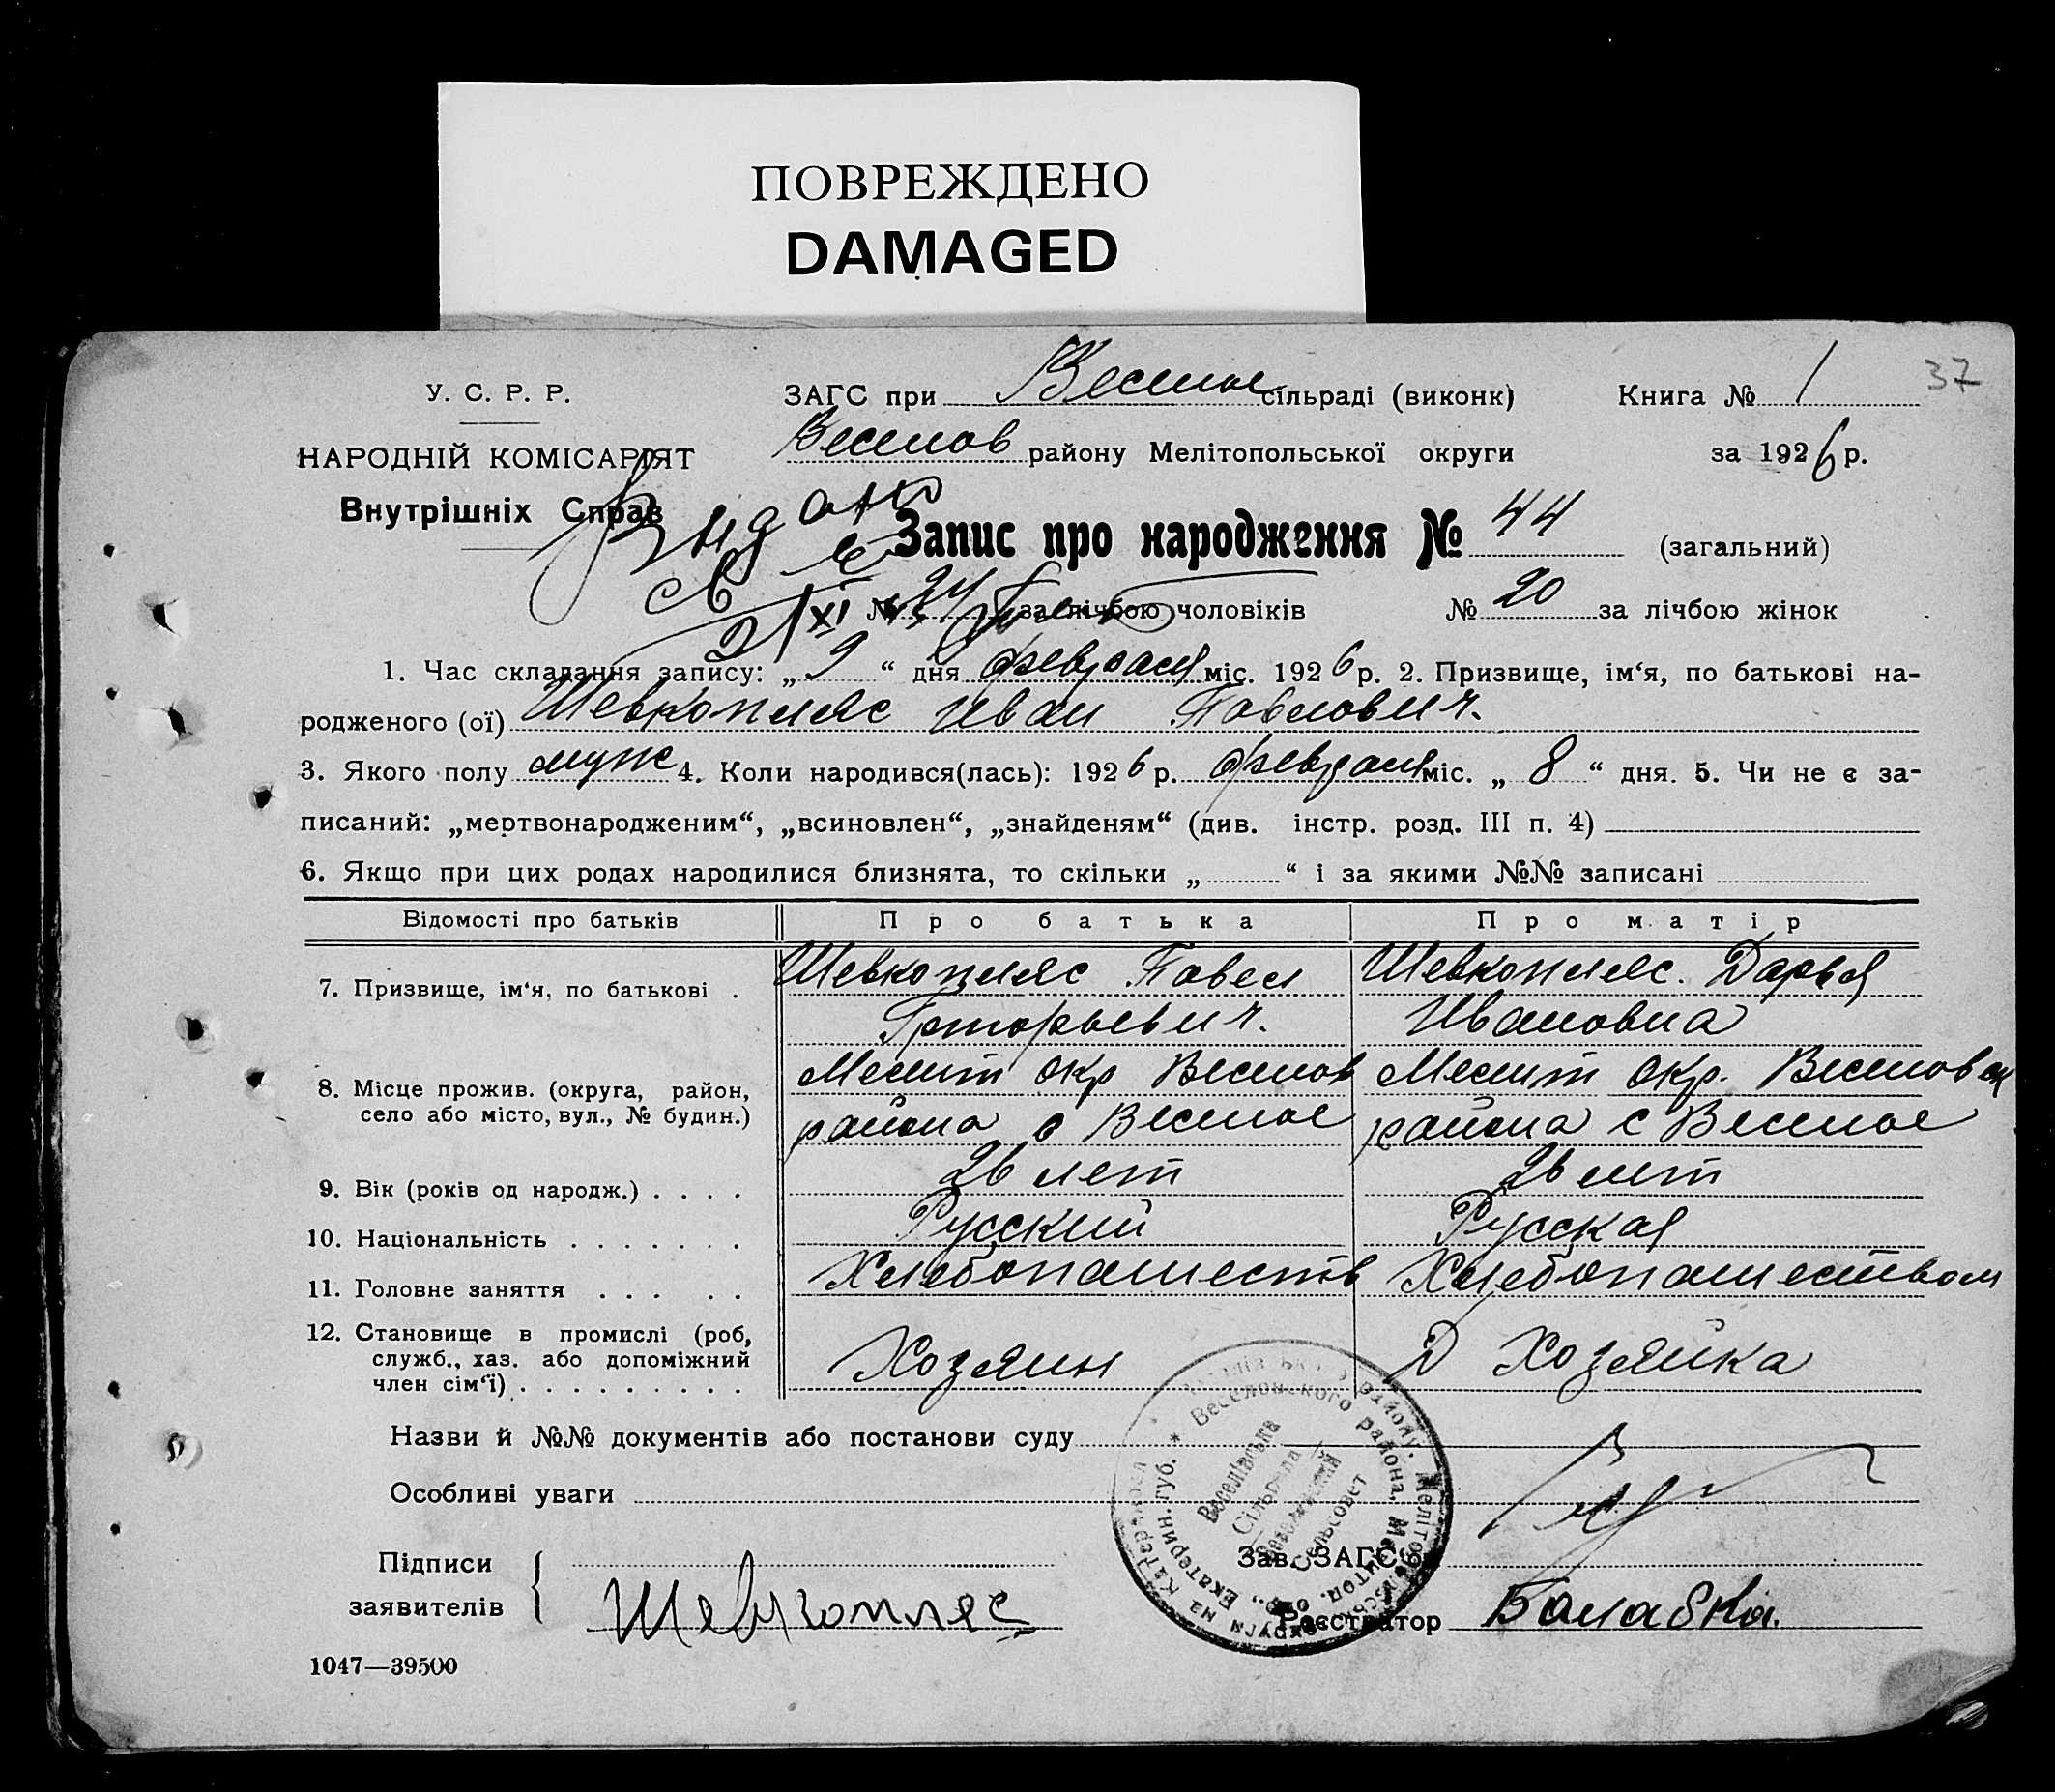 ПОВРЕЖДЕНО
DAMAGED
У. С. Р. Р. ЗАГС при Веселое сільраді (виконк) Книга № 1 37
НАРОДНІЙ КОМІСАРІЯТ Веселов району Мелітопольської округи за 1926 р.
Внутрішніх Справ
Запис про народження № 44 (загальний)
№ 24 за лічбою чоловіків № 20 за лічбою жінок
1. Час складання запису: „ 9 “ дня февраля міс. 1926 р. 2. Призвище, ім‘я, по батькові на-
родженого (ої) Шевкопляс Иван Павлович.
3. Якого полу муж 4. Коли народився(лась): 1926 р. февраля міс. „ 8 “ дня. 5. Чи не є за-
писаний: „мертвонародженим“, „всиновлен“, „знайденям“ (див. інстр. розд. III п. 4)
6. Якщо при цих родах народилися близнята, то скільки „ “ і за якими №№ записані
Відомості про батьків Про батька Про матір
7. Призвище, ім‘я, по батькові . Шевкопляс Павел Шевкопляс. Дарья
Григорьевич. Ивановна
8. Місце прожив. (округа, район, Мелит окр Веселов Мелит окр. Веселовск
село або місто, вул., № будин.) района с Веселое района с Веселое
9. Вік (років од народж.) . . . . 26 лет 26 лет
10. Національність . . . . . . . Русский Русская
11. Головне заняття . . . . . Хлебопашеств Хлебопашеством
12. Становище в промислі (роб,
служб., хаз. або допоміжний Хозяин Д Хозяйка
член сім‘ї) . . . . . . . . .
Назви й №№ документів або постанови суду
Особливі уваги
Підписи Зав. ЗАГС‘ом
заявителів Шевкопляс Реєстратор Балабка.
Веселівська
Сільрада
Сельсовет
1047—39500